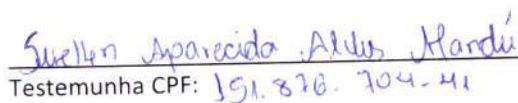 Suellen Aparecida Alves Mandú
Testemunha CPF: 151.876.704-41